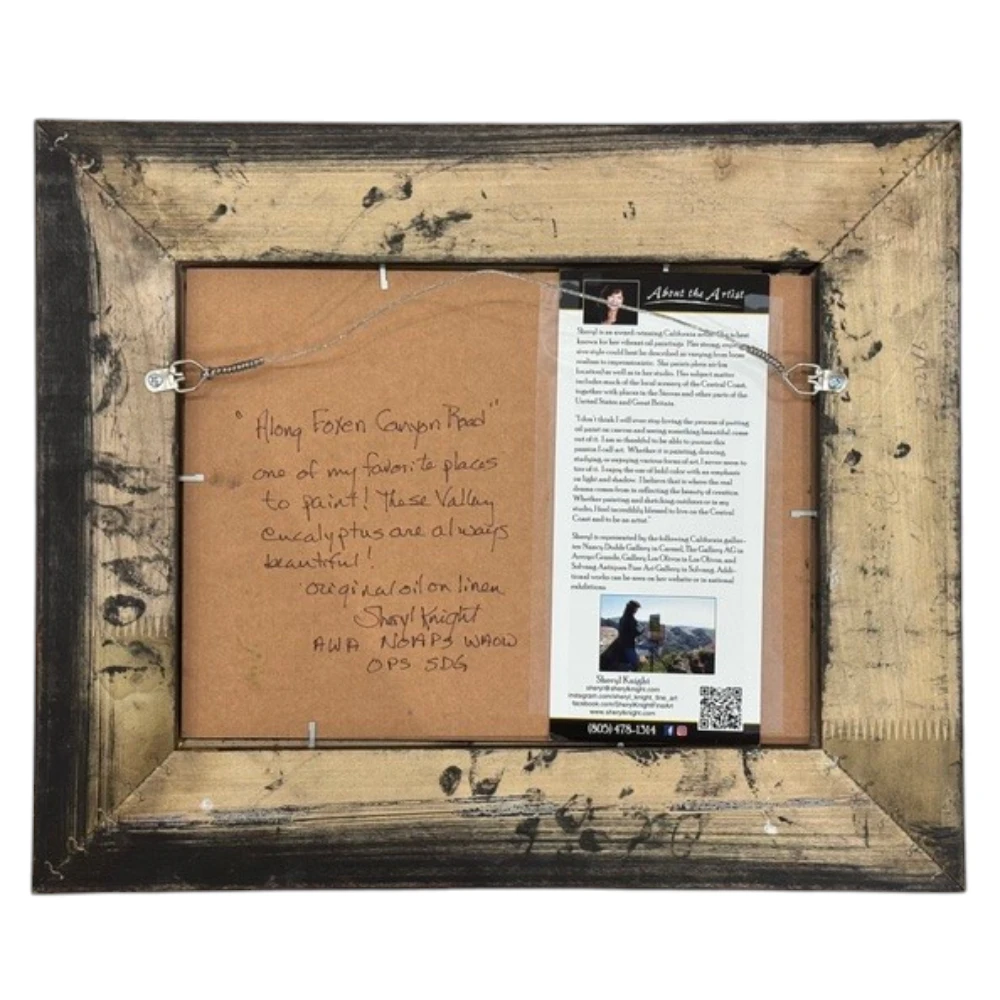 "Along Foxen Canyon Road"
one of my favorite places
to paint! These Valley
eucalyptus are always
beautiful!
original oil on linen
Sheryl Knight
AWA NOAPS WAOW
OPS SDG
About the Artist
Sheryl is an award-winning California artist. She is best
known for her vibrant oil paintings. Her strong, expres-
sive style could best be described as varying from loose
realism to impressionistic. She paints plein air (on
location) as well as in her studio. Her subject matter
includes much of the local scenery of the Central Coast,
together with places in the Sierras and other parts of the
United States and Great Britain.
"I don't think I will ever stop loving the process of putting
oil paint on canvas and seeing something beautiful come
out of it. I am so thankful to be able to pursue this
passion I call art. Whether it is painting, drawing,
studying, or enjoying various forms of art, I never seem to
tire of it. I enjoy the use of bold color with an emphasis
on light and shadow. I believe that is where the real
drama comes from in reflecting the beauty of creation.
Whether painting and sketching outdoors or in my
studio, I feel incredibly blessed to live on the Central
Coast and to be an artist."
Sheryl is represented by the following California galler-
ies: Nancy Dodds Gallery in Carmel, The Gallery AG in
Arroyo Grande, Gallery Los Olivos in Los Olivos, and
Solvang Antiques Fine Art Gallery in Solvang. Addi-
tional works can be seen on her website or in national
exhibitions.
Sheryl Knight
sheryl@sherylknight.com
instagram.com/sheryl_knight_fine_art
facebook.com/SherylKnightFineArt
www.sherylknight.com
(805) 478-1314